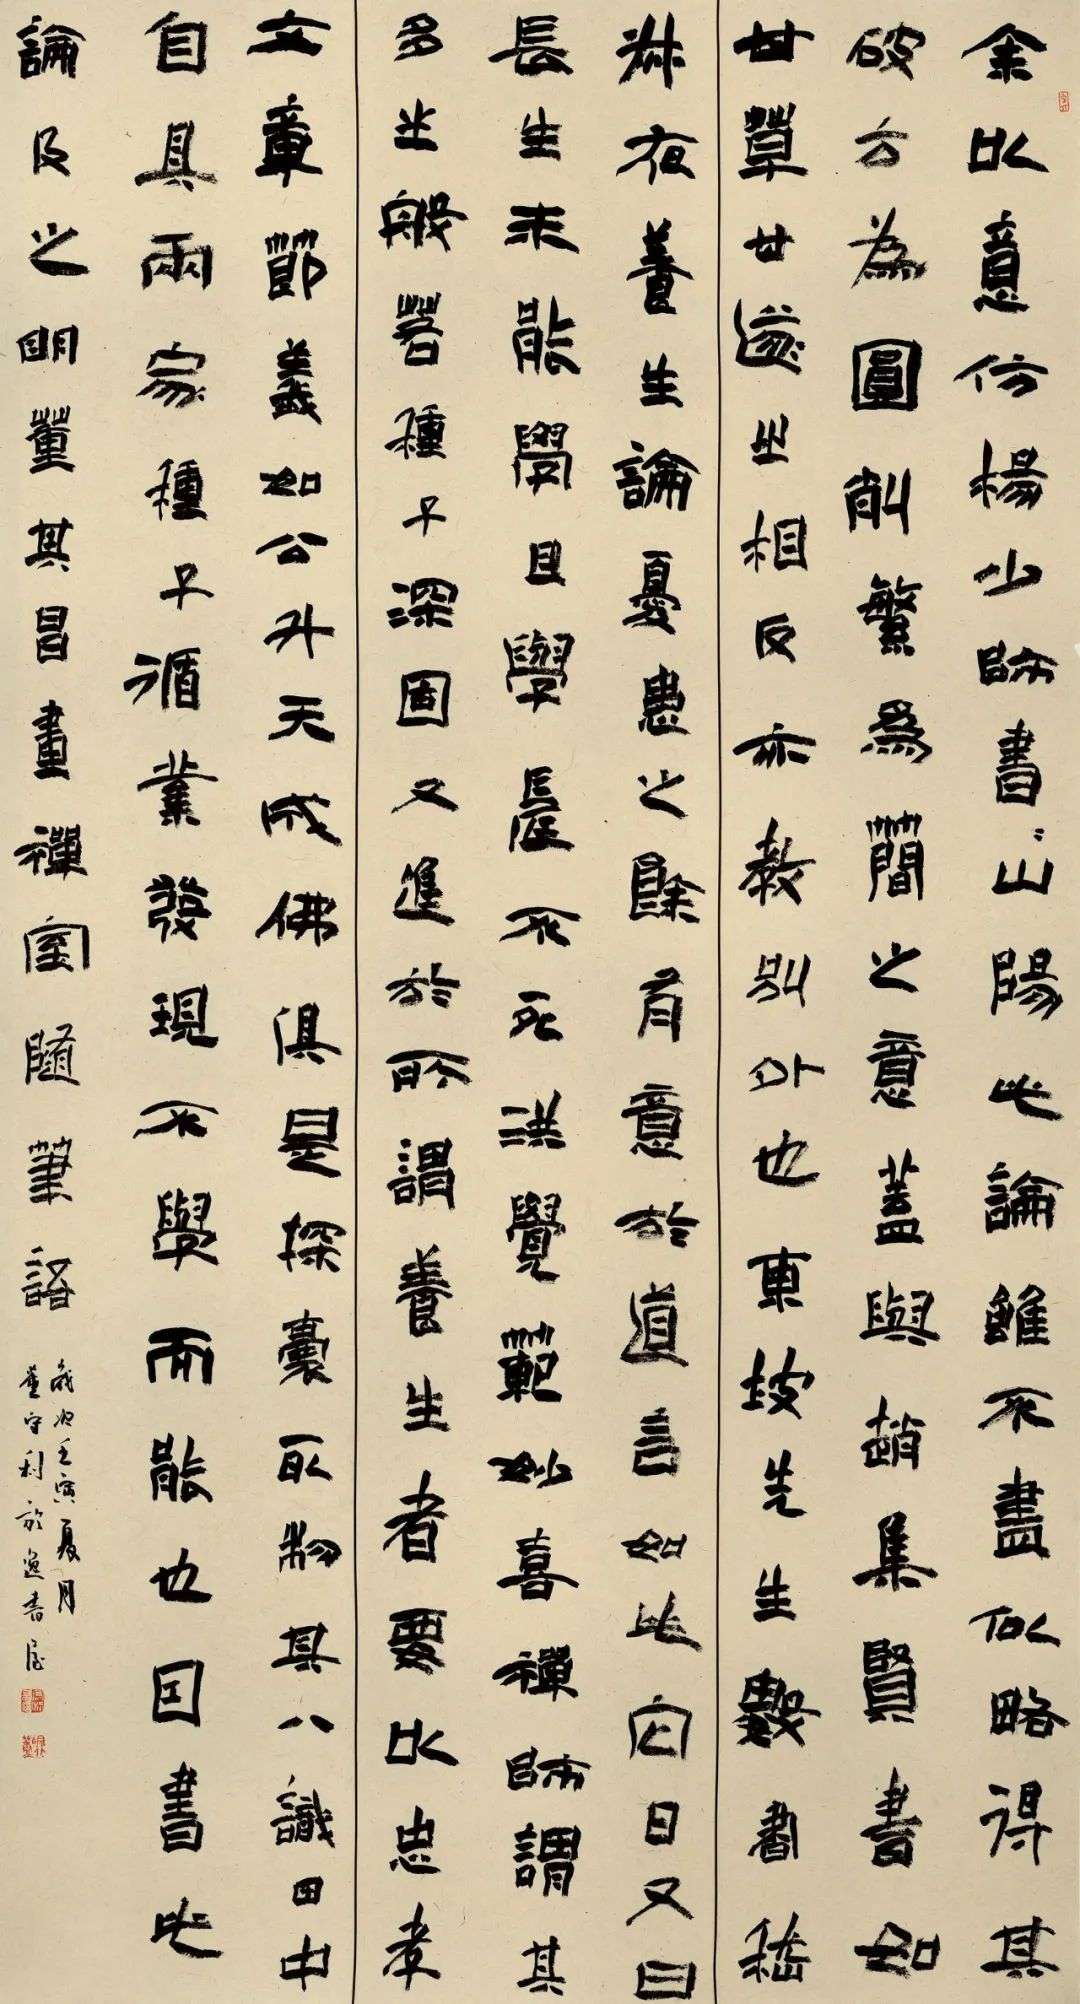 余以意仿楊少師書〻山陽此論雖不盡似略得其
破方為圓削繁為簡之意蓋與趙集賢書如
甘草甘遂之相反亦教別外也東坡先生數書嵇
叔夜養生論憂患之餘有意於道言如此它日又曰
長生未能學且學長不死洪覺範妙喜禪師謂其
多之般若種子深固又進於所謂養生者要以忠孝
文章節義如公升天成佛俱是探囊取物其八識田中
自具兩家種子循業發現不學而能也因書此
論及之明董其昌畫禪室隨筆語
歲次壬寅夏月
董守利於逸書屋